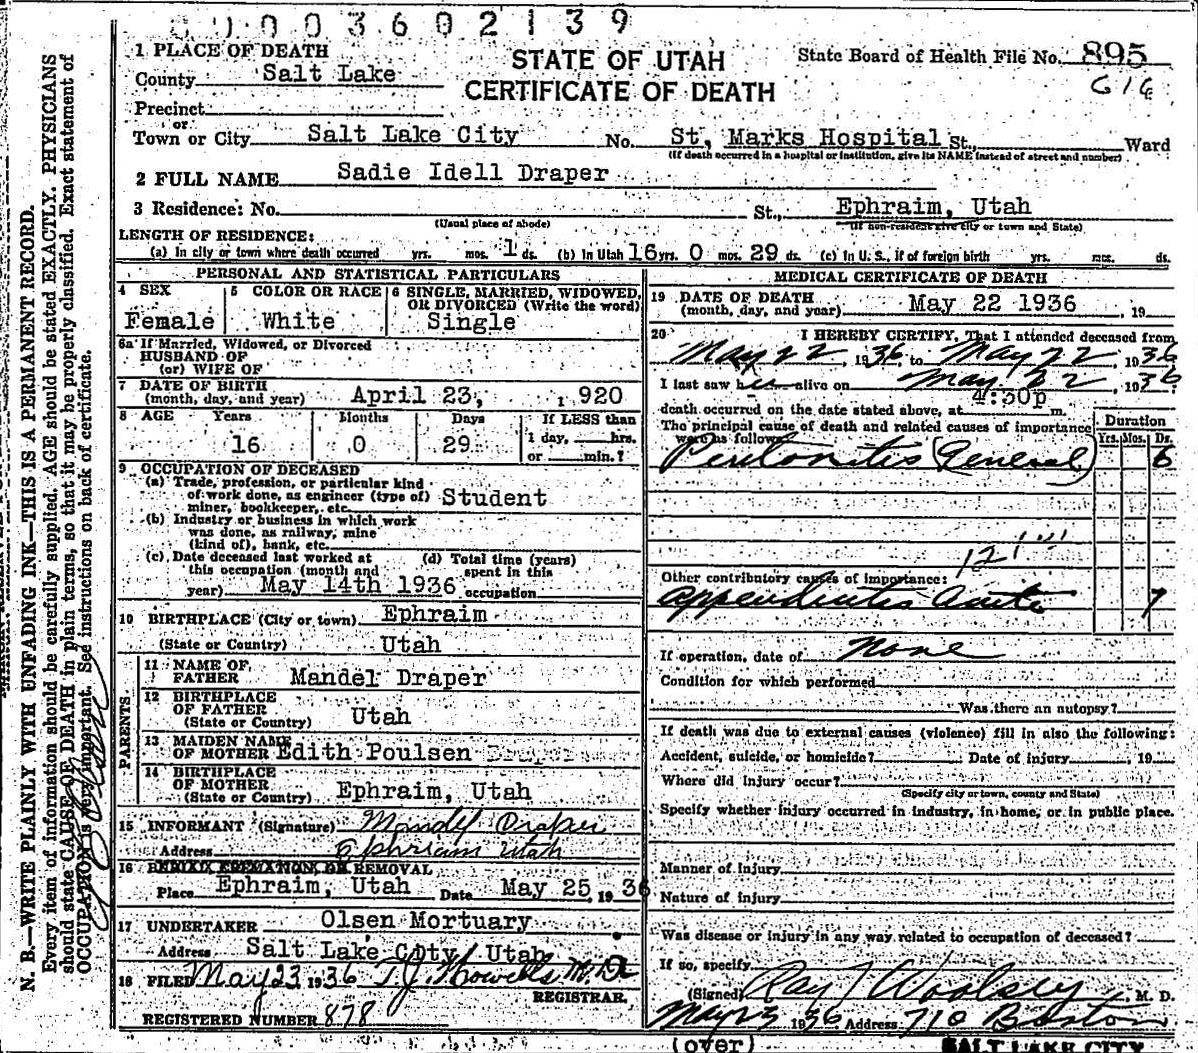 0003602139
1 PLACE OF DEATH
County Salt Lake
STATE OF UTAH
CERTIFICATE OF DEATH
State Board of Health File No. 895
616
Precinct
or
Town or City Salt Lake City No. St, Marks Hospital St., Ward
(If death occurred in a hospital or institution, give its NAME instead of street and number)
2 FULL NAME Sadie Idell Draper
3 Residence: No. St., Ephraim, Utah
(Usual place of abode) (If non-resident give city or town and State)
LENGTH OF RESIDENCE:
(a) In city or town where death occurred yrs. mos. 1 ds. (b) In Utah 16 yrs. 0 mos. 29 ds. (c) In U. S., if of foreign birth yrs. mos. ds.
PERSONAL AND STATISTICAL PARTICULARS
4 SEX
Female
5 COLOR OR RACE
White
6 SINGLE, MARRIED, WIDOWED,
OR DIVORCED (Write the word)
Single
6a If Married, Widowed, or Divorced
HUSBAND OF
(or) WIFE OF
7 DATE OF BIRTH
(month, day, and year) April 23, 1920
8 AGE Years Months Days If LESS than
16 0 29 1 day, hrs.
or min.?
9 OCCUPATION OF DECEASED
(a) Trade, profession, or particular kind
of work done, as engineer (type of)
miner, bookkeeper, etc. Student
(b) Industry or business in which work
was done, as railway, mine
(kind of), bank, etc.
(c) Date deceased last worked at
this occupation (month and
year) May 14th 1936
(d) Total time (years)
spent in this
occupation
10 BIRTHPLACE (City or town) Ephraim
(State or Country) Utah
PARENTS
11 NAME OF
FATHER Mandel Draper
12 BIRTHPLACE
OF FATHER
(State or Country) Utah
13 MAIDEN NAME
OF MOTHER Edith Poulsen Draper
14 BIRTHPLACE
OF MOTHER
(State or Country) Ephraim, Utah
15 INFORMANT (Signature) Mandel Draper
Address Ephriam Utah
16 BURIAL, CREMATION, OR REMOVAL
Place Ephraim, Utah Date May 25, 1936
17 UNDERTAKER Olsen Mortuary
Address Salt Lake City Utah
18 FILED May 23 1936 T.J. Howells M.D.
REGISTRAR.
REGISTERED NUMBER 878
MEDICAL CERTIFICATE OF DEATH
19 DATE OF DEATH
(month, day, and year) May 22 1936, 19
20 I HEREBY CERTIFY, That I attended deceased from
May 22, 1936, to May 22, 1936
I last saw her alive on May 22, 1936
death occurred on the date stated above, at 4:30p m.
The principal cause of death and related causes of importance
were as follows:
Duration
Yrs. Mos. Ds.
Peritonitis (General) 6
12
Other contributory causes of importance:
Appendicitis Acute 7
If operation, date of None
Condition for which performed
Was there an autopsy?
If death was due to external causes (violence) fill in also the following:
Accident, suicide, or homicide? Date of injury, 19
Where did injury occur?
(Specify city or town, county and State)
Specify whether injury occurred in industry, in home, or in public place.
Manner of injury
Nature of injury
Was disease or injury in any way related to occupation of deceased?
If so, specify
(Signed) Ray T Woolsey, M. D.
May 23 1936 Address 710 Boston
(over) SALT LAKE CITY
N. B.—WRITE PLAINLY WITH UNFADING INK—THIS IS A PERMANENT RECORD.
Every item of information should be carefully supplied. AGE should be stated EXACTLY. PHYSICIANS
should state CAUSE OF DEATH in plain terms, so that it may be properly classified. Exact statement of
OCCUPATION is very important. See instructions on back of certificate.